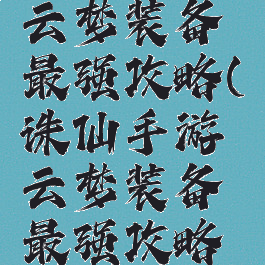 云梦装备
最强攻略(
诛仙手游
云梦装备
最强攻略